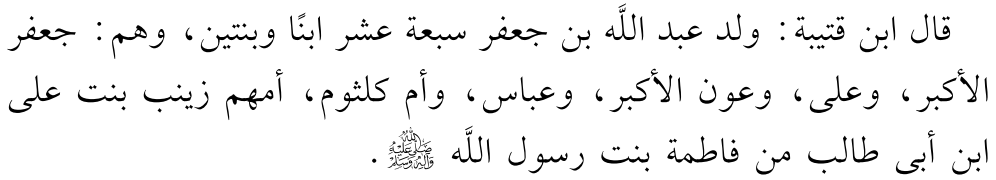 قال ابن قتيبة: ولد عبد اللَّه بن جعفر سبعة عشر ابنًا وبنتين، وهم: جعفر
الأكبر، وعلى، وعون الأكبر، وعباس، وأم كلثوم، أمهم زينب بنت على
ابن أبى طالب من فاطمة بنت رسول اللَّه ﷺ.